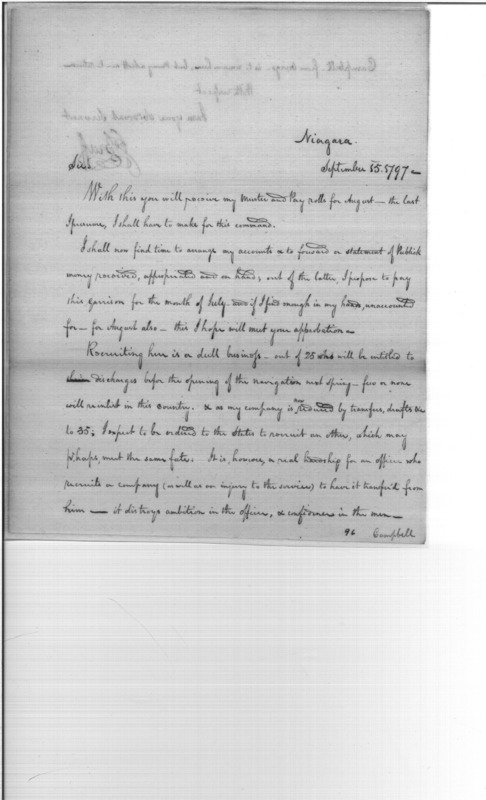 Niagara.
September 15. 1797 —
Sir!
With this you will receive my Muster and Pay rolls for August — the last
I presume, I shall have to make for this command.
I shall now find time to arrange my accounts & to forward a statement of Publick
money received, appropriated and on hand; out of the latter, I propose to pay
this garrison for the month of July and if I find enough in my hands, unaccounted
for — for August also — this I hope will meet your approbation —
Recruiting here is a dull business — out of 25 who will be entitled to
their discharges before the opening of the navigation next spring — few or none
will reinlist in this country. & as my company is now reduced by transfers, drafts &c
to 35; I expect to be ordered to the States to recruit another, which may
perhaps, meet the same fate. It is, however, a real hardship for an officer who
recruits a company (as well as an injury to the service) to have it transferd from
him — it distroys ambition in the officer, & confidence in the men —
96 Campbell